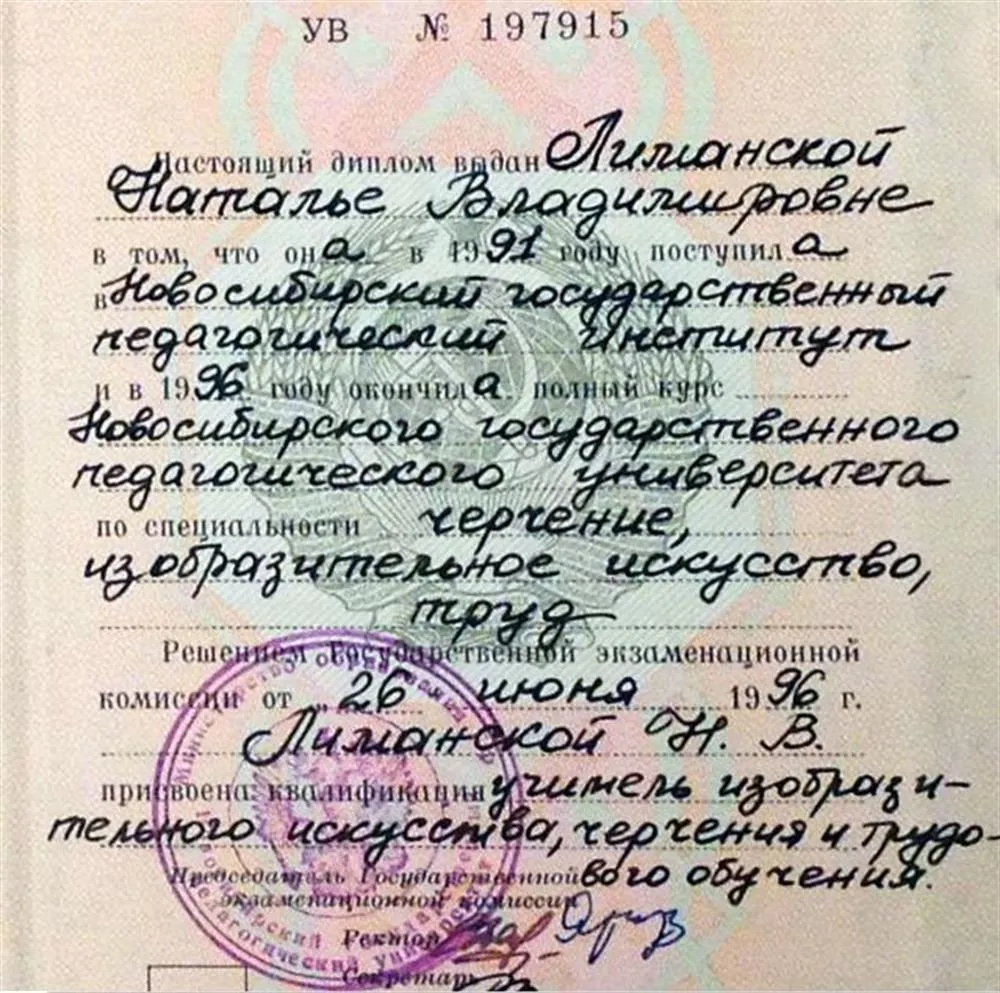 УВ № 197915
Настоящий диплом выдан Лиманской
Наталье Владимировне
в том, что она в 1991 году поступила
в Новосибирский государственный
педагогический институт
и в 1996 году окончила полный курс
Новосибирского государственного
педагогического университета
по специальности черчение,
изобразительное искусство,
труд
Решением Государственной экзаменационной
комиссии от „26 июня 1996 г.
Лиманской Н. В.
присвоена квалификация учитель изобрази-
тельного искусства, черчения и трудо-
вого обучения.
Председатель Государственной
экзаменационной комиссии
Ректор
Секретарь